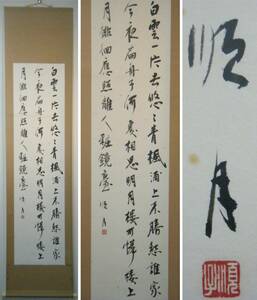 白雲一片去悠々青楓浦上不勝愁誰家
今夜扁舟子何處相思明月樓可憐樓上
月徘徊應照離人粧鏡臺 順月
白雲一片去悠々青楓浦上不勝愁誰家
今夜扁舟子何處相思明月樓可憐樓上
月徘徊應照離人粧鏡臺 順月
順月